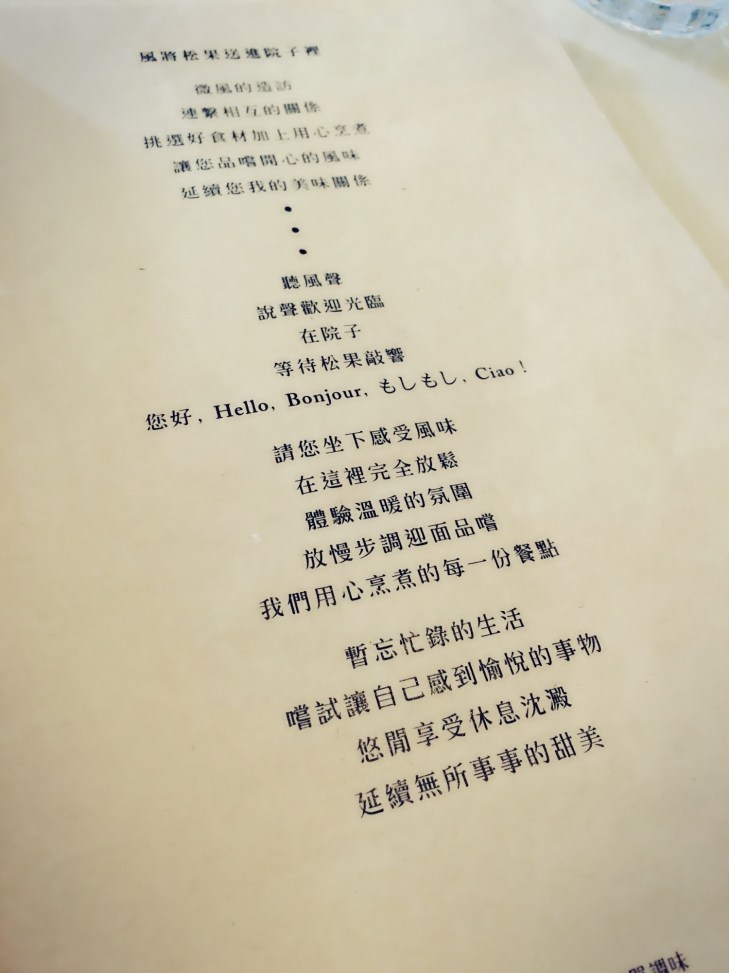 風將松果送進院子裡
微風的造訪
連繫相互的關係
挑選好食材加上用心烹煮
讓您品嚐開心的風味
延續您我的美味關係
•
•
•
聽風聲
說聲歡迎光臨
在院子
等待松果敲響
您好, Hello, Bonjour, もしもし, Ciao！
請您坐下感受風味
在這裡完全放鬆
體驗溫暖的氛圍
放慢步調迎面品嚐
我們用心烹煮的每一份餐點
暫忘忙錄的生活
嚐試讓自己感到愉悅的事物
悠閒享受休息沈澱
延續無所事事的甜美
調味